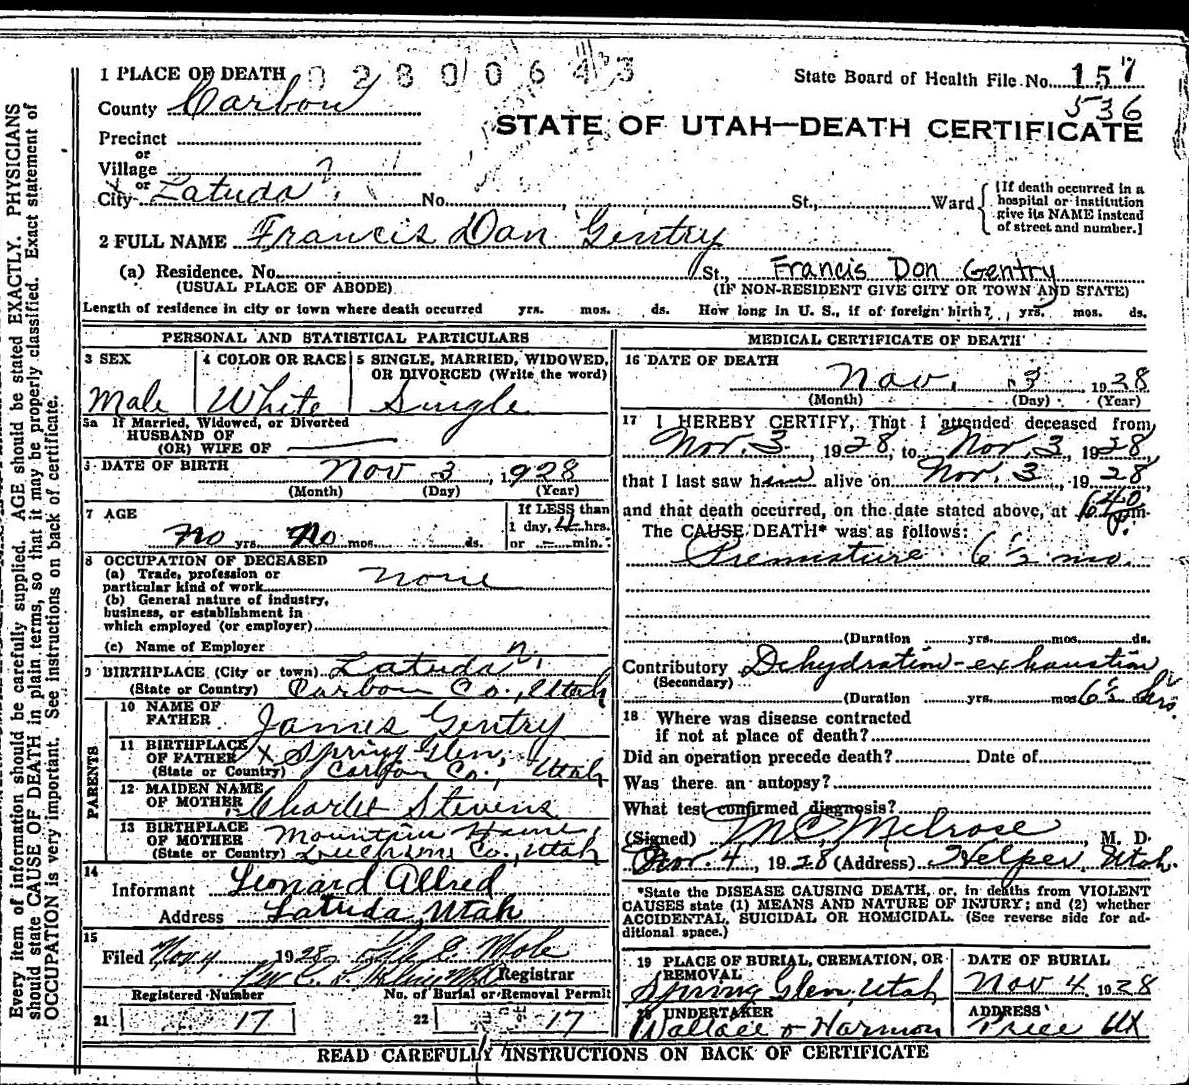 Every item of information should be carefully supplied. AGE should be stated EXACTLY. PHYSICIANS
should state CAUSE OF DEATH in plain terms, so that it may be properly classified. Exact statement of
OCCUPATION is very important. See instructions on back of certificate.
1 PLACE OF DEATH
State Board of Health File No. 157
536
County Carbon
STATE OF UTAH—DEATH CERTIFICATE
Precinct
or
Village
or
City Latuda No. St., Ward
[If death occurred in a
hospital or institution
give its NAME instead
of street and number.]
2 FULL NAME Francis Don Gentry
(a) Residence. No. St., Francis Don Gentry
(USUAL PLACE OF ABODE) (IF NON-RESIDENT GIVE CITY OR TOWN AND STATE)
Length of residence in city or town where death occurred yrs. mos. ds. How long in U. S., if of foreign birth? yrs. mos. ds.
PERSONAL AND STATISTICAL PARTICULARS
3 SEX 4 COLOR OR RACE 5 SINGLE, MARRIED, WIDOWED,
OR DIVORCED (Write the word)
Male White Single
5a If Married, Widowed, or Divorced
HUSBAND OF
(OR) WIFE OF
6 DATE OF BIRTH Nov 3, 1928
(Month) (Day) (Year)
7 AGE If LESS than
1 day, 4 hrs.
No yrs. No mos. ds. or — min.
8 OCCUPATION OF DECEASED
(a) Trade, profession or
particular kind of work none
(b) General nature of industry,
business, or establishment in
which employed (or employer)
(c) Name of Employer
9 BIRTHPLACE (City or town) Latuda
(State or Country) Carbon Co., Utah
PARENTS
10 NAME OF
FATHER James Gentry
11 BIRTHPLACE
OF FATHER X Spring Glen,
(State or Country) Carbon Co., Utah
12 MAIDEN NAME
OF MOTHER Stevens
13 BIRTHPLACE
OF MOTHER Mountain Home,
(State or Country) Duchesne Co., Utah
14
Informant Leonard Allred
Address Latuda Utah
15
Filed Nov 4 1928
Registrar
Registered Number No. of Burial or Removal Permit
21 17 22 17
MEDICAL CERTIFICATE OF DEATH
16 DATE OF DEATH
Nov. 3 1928
(Month) (Day) (Year)
17 I HEREBY CERTIFY, That I attended deceased from
Nov. 3, 1928, to Nov. 3, 1928,
that I last saw him alive on Nov. 3, 1928,
and that death occurred, on the date stated above, at 640 p.m.
The CAUSE DEATH* was as follows:
Premature 6½ mo.
(Duration yrs. mos. ds.
Contributory Dehydration-exhaustion
(Secondary)
(Duration yrs. mos 6½ hrs.
18 Where was disease contracted
if not at place of death?
Did an operation precede death? Date of
Was there an autopsy?
What test confirmed diagnosis?
(Signed) M C Melrose, M. D.
Nov. 4, 1928 (Address) Helper, Utah.
*State the DISEASE CAUSING DEATH, or, in deaths from VIOLENT
CAUSES state (1) MEANS AND NATURE OF INJURY; and (2) whether
ACCIDENTAL, SUICIDAL OR HOMICIDAL. (See reverse side for ad-
ditional space.)
19 PLACE OF BURIAL, CREMATION, OR
REMOVAL
DATE OF BURIAL
Spring Glen, Utah Nov 4 1928
20 UNDERTAKER ADDRESS
Wallace & Harmon Price Ut
READ CAREFULLY INSTRUCTIONS ON BACK OF CERTIFICATE